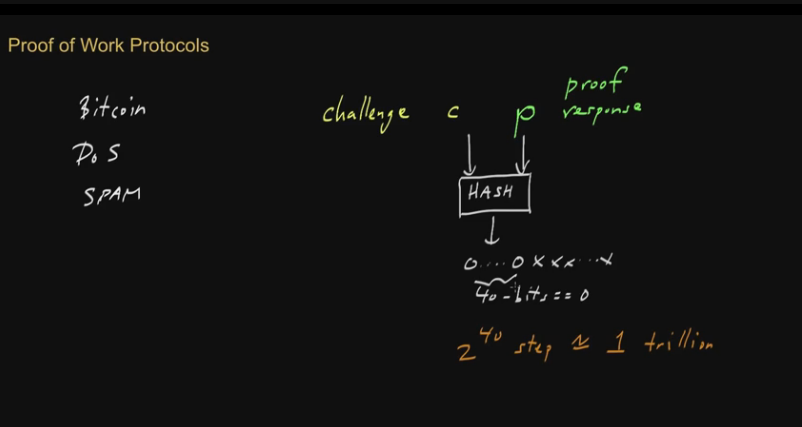 Proof of Work Protocols
Bitcoin
DoS
SPAM
challenge c p proof
response
HASH
0....0xxx...x
40-bits==0
2^40 step ≈ 1 trillion